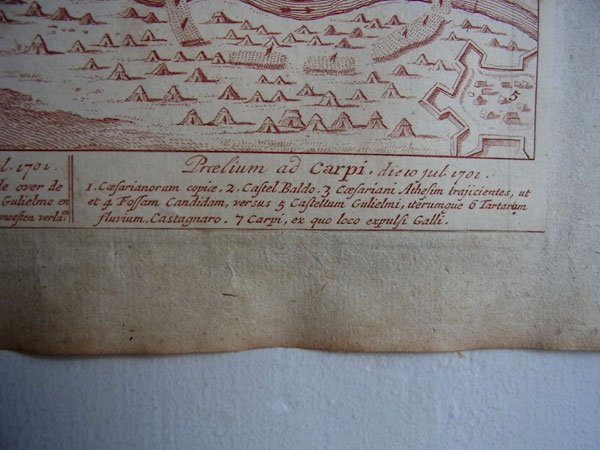 5
l. 1701.
e over de
Gulielmo en
moesten verla
Prælium ad Carpi, die 10 jul. 1701.
1. Cæsarianorum copiæ. 2. Castel Baldo. 3 Cæsariani Athesim trajicientes, ut
et 4 Fossam Candidam, versus 5 Castellum Gulielmi, utrumque 6 Tartarum
fluvium. Castagnaro. 7 Carpi, ex quo loco expulsi Galli.